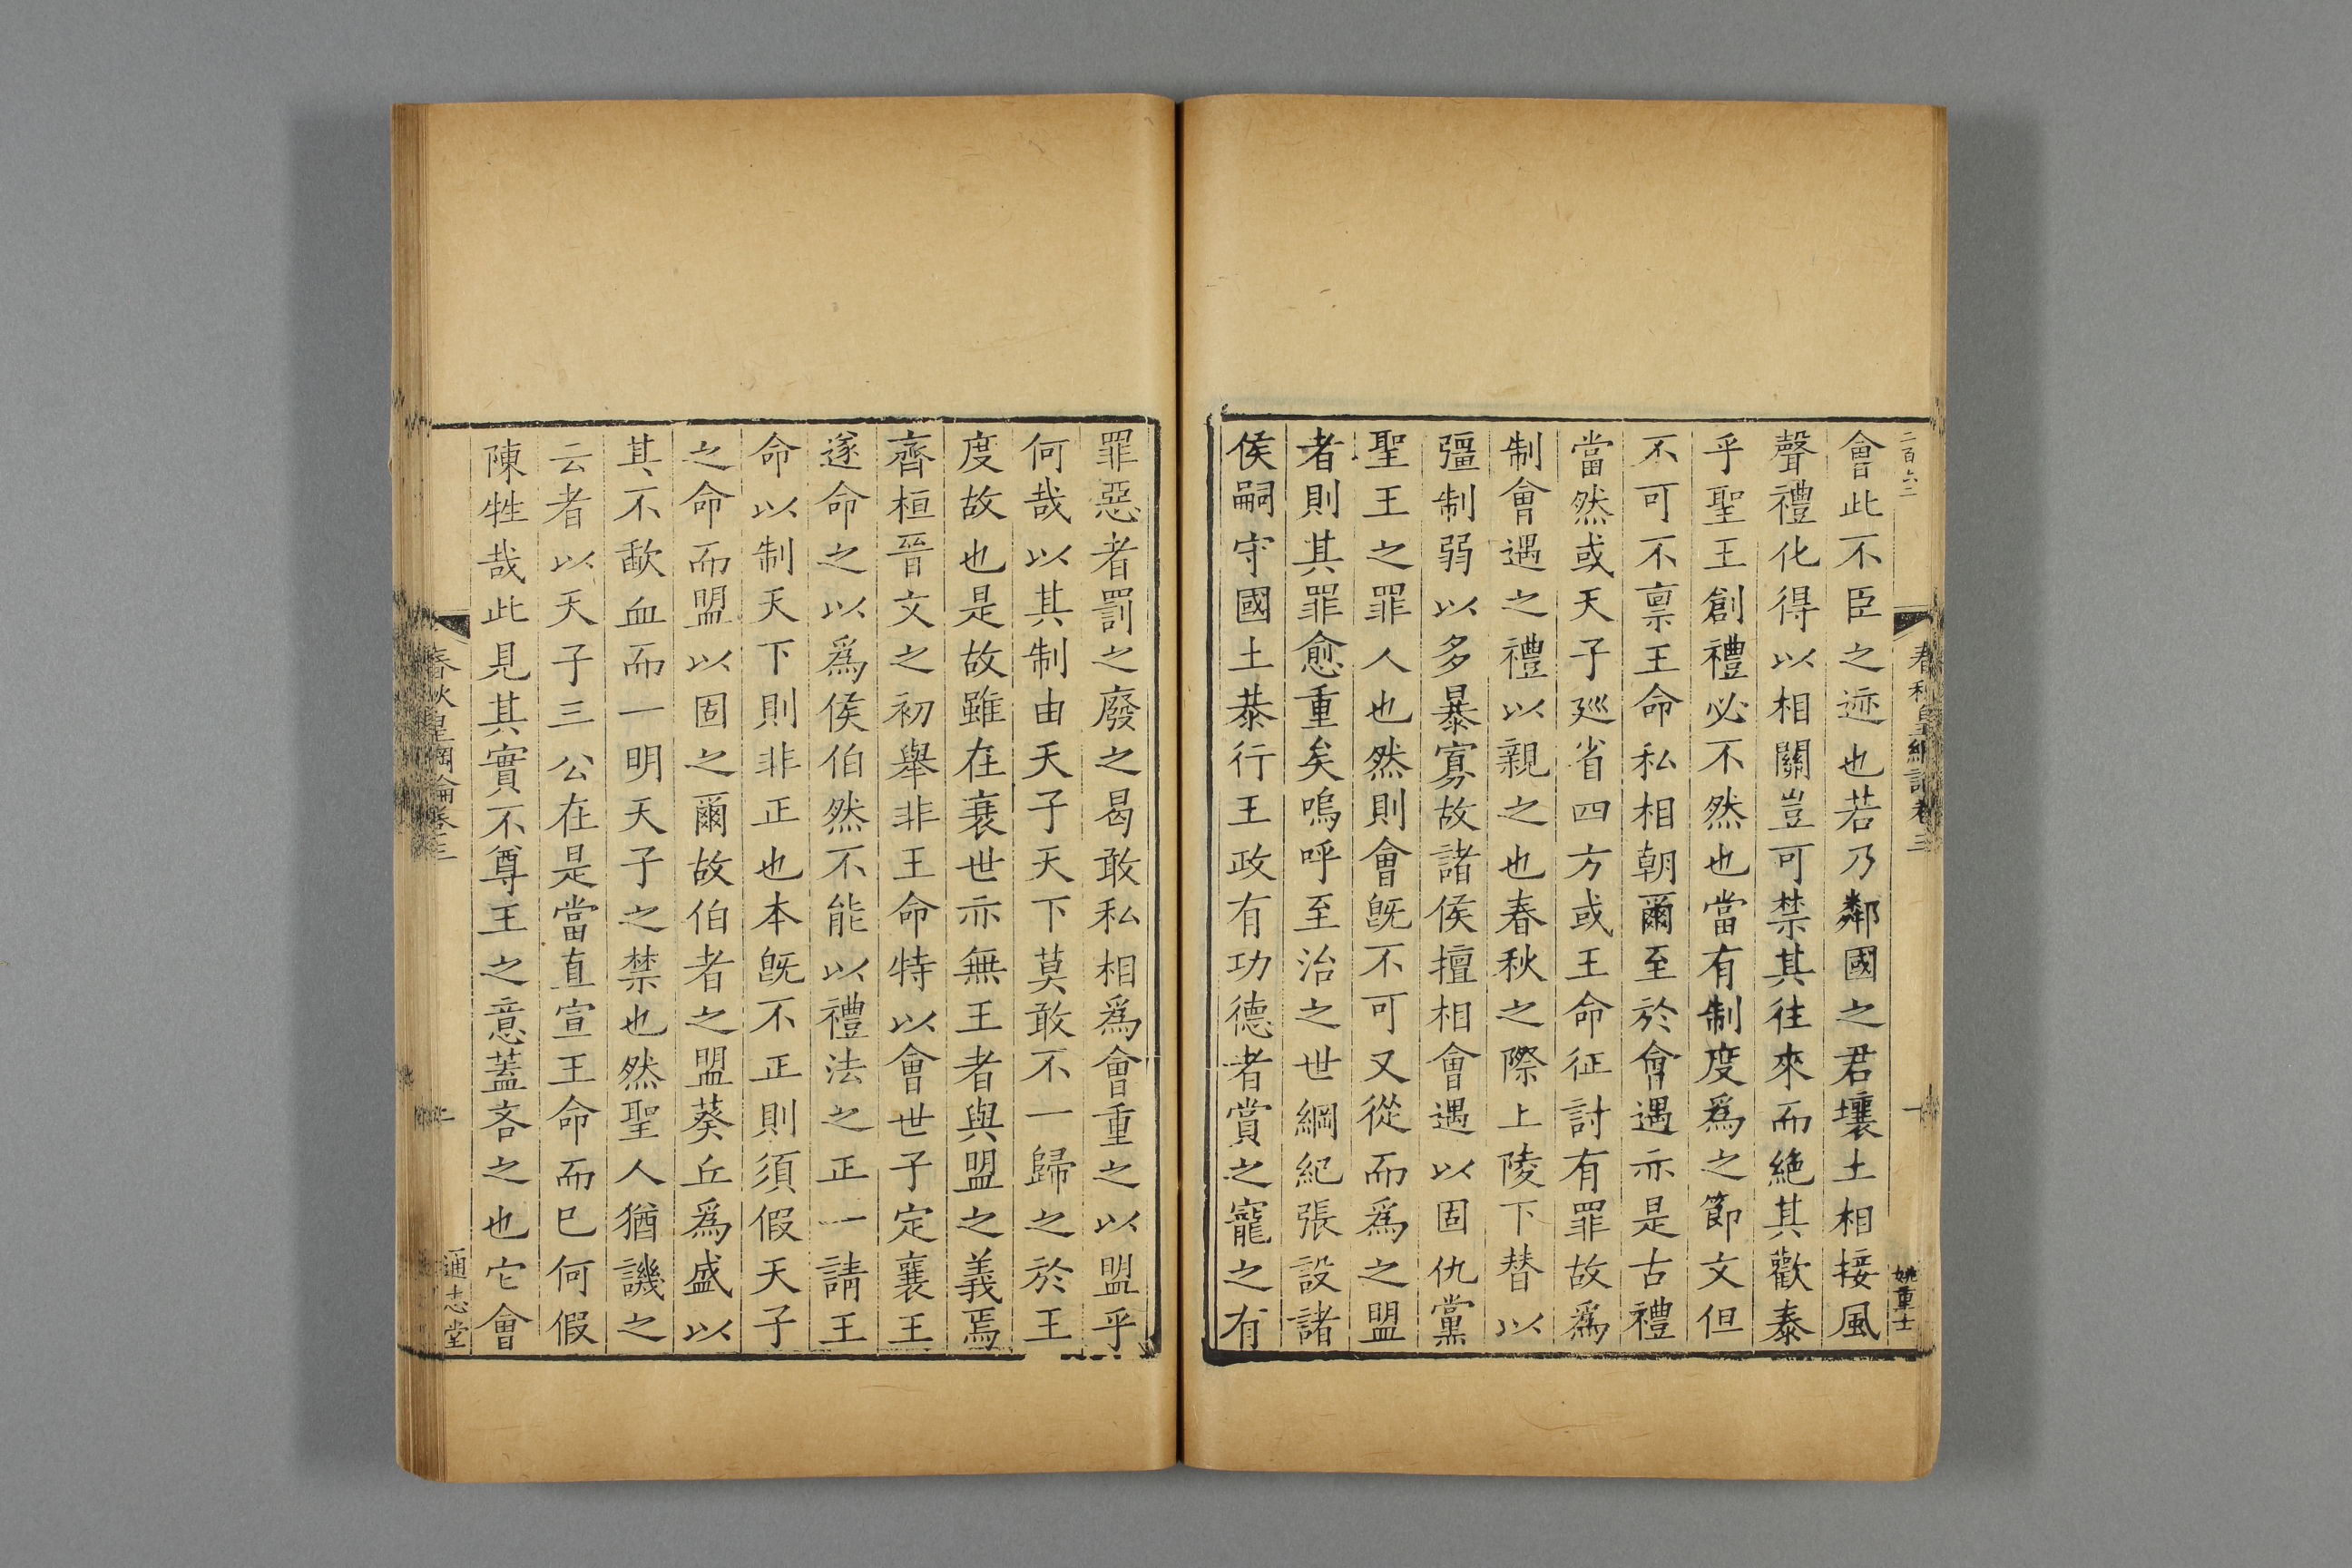 二百六二
春秋皇綱論卷三
一
姚重士
會此不臣之迹也若乃鄰國之君壤土相接風
聲禮化得以相關豈可禁其往來而絶其歡泰
乎聖王創禮必不然也當有制度爲之節文但
不可不禀王命私相朝爾至於會遇亦是古禮
當然或天子廵省四方或王命征討有罪故爲
制會遇之禮以親之也春秋之際上陵下替以
彊制弱以多暴寡故諸侯擅相會遇以固仇黨
聖王之罪人也然則會旣不可又從而爲之盟
者則其罪愈重矣嗚呼至治之世綱紀張設諸
侯嗣守國土恭行王政有功德者賞之寵之有
罪惡者罰之廢之曷敢私相爲會重之以盟乎
何哉以其制由天子天下莫敢不一歸之於王
度故也是故雖在衰世亦無王者與盟之義焉
齊桓晉文之初舉非王命特以會世子定襄王
遂命之以爲侯伯然不能以禮法之正一請王
命以制天下則非正也本旣不正則須假天子
之命而盟以固之爾故伯者之盟葵丘爲盛以
其不歃血而一明天子之禁也然聖人猶譏之
云者以天子三公在是當直宣王命而已何假
陳牲哉此見其實不尊王之意蓋吝之也它會
春秋皇綱論卷三
二
通志堂